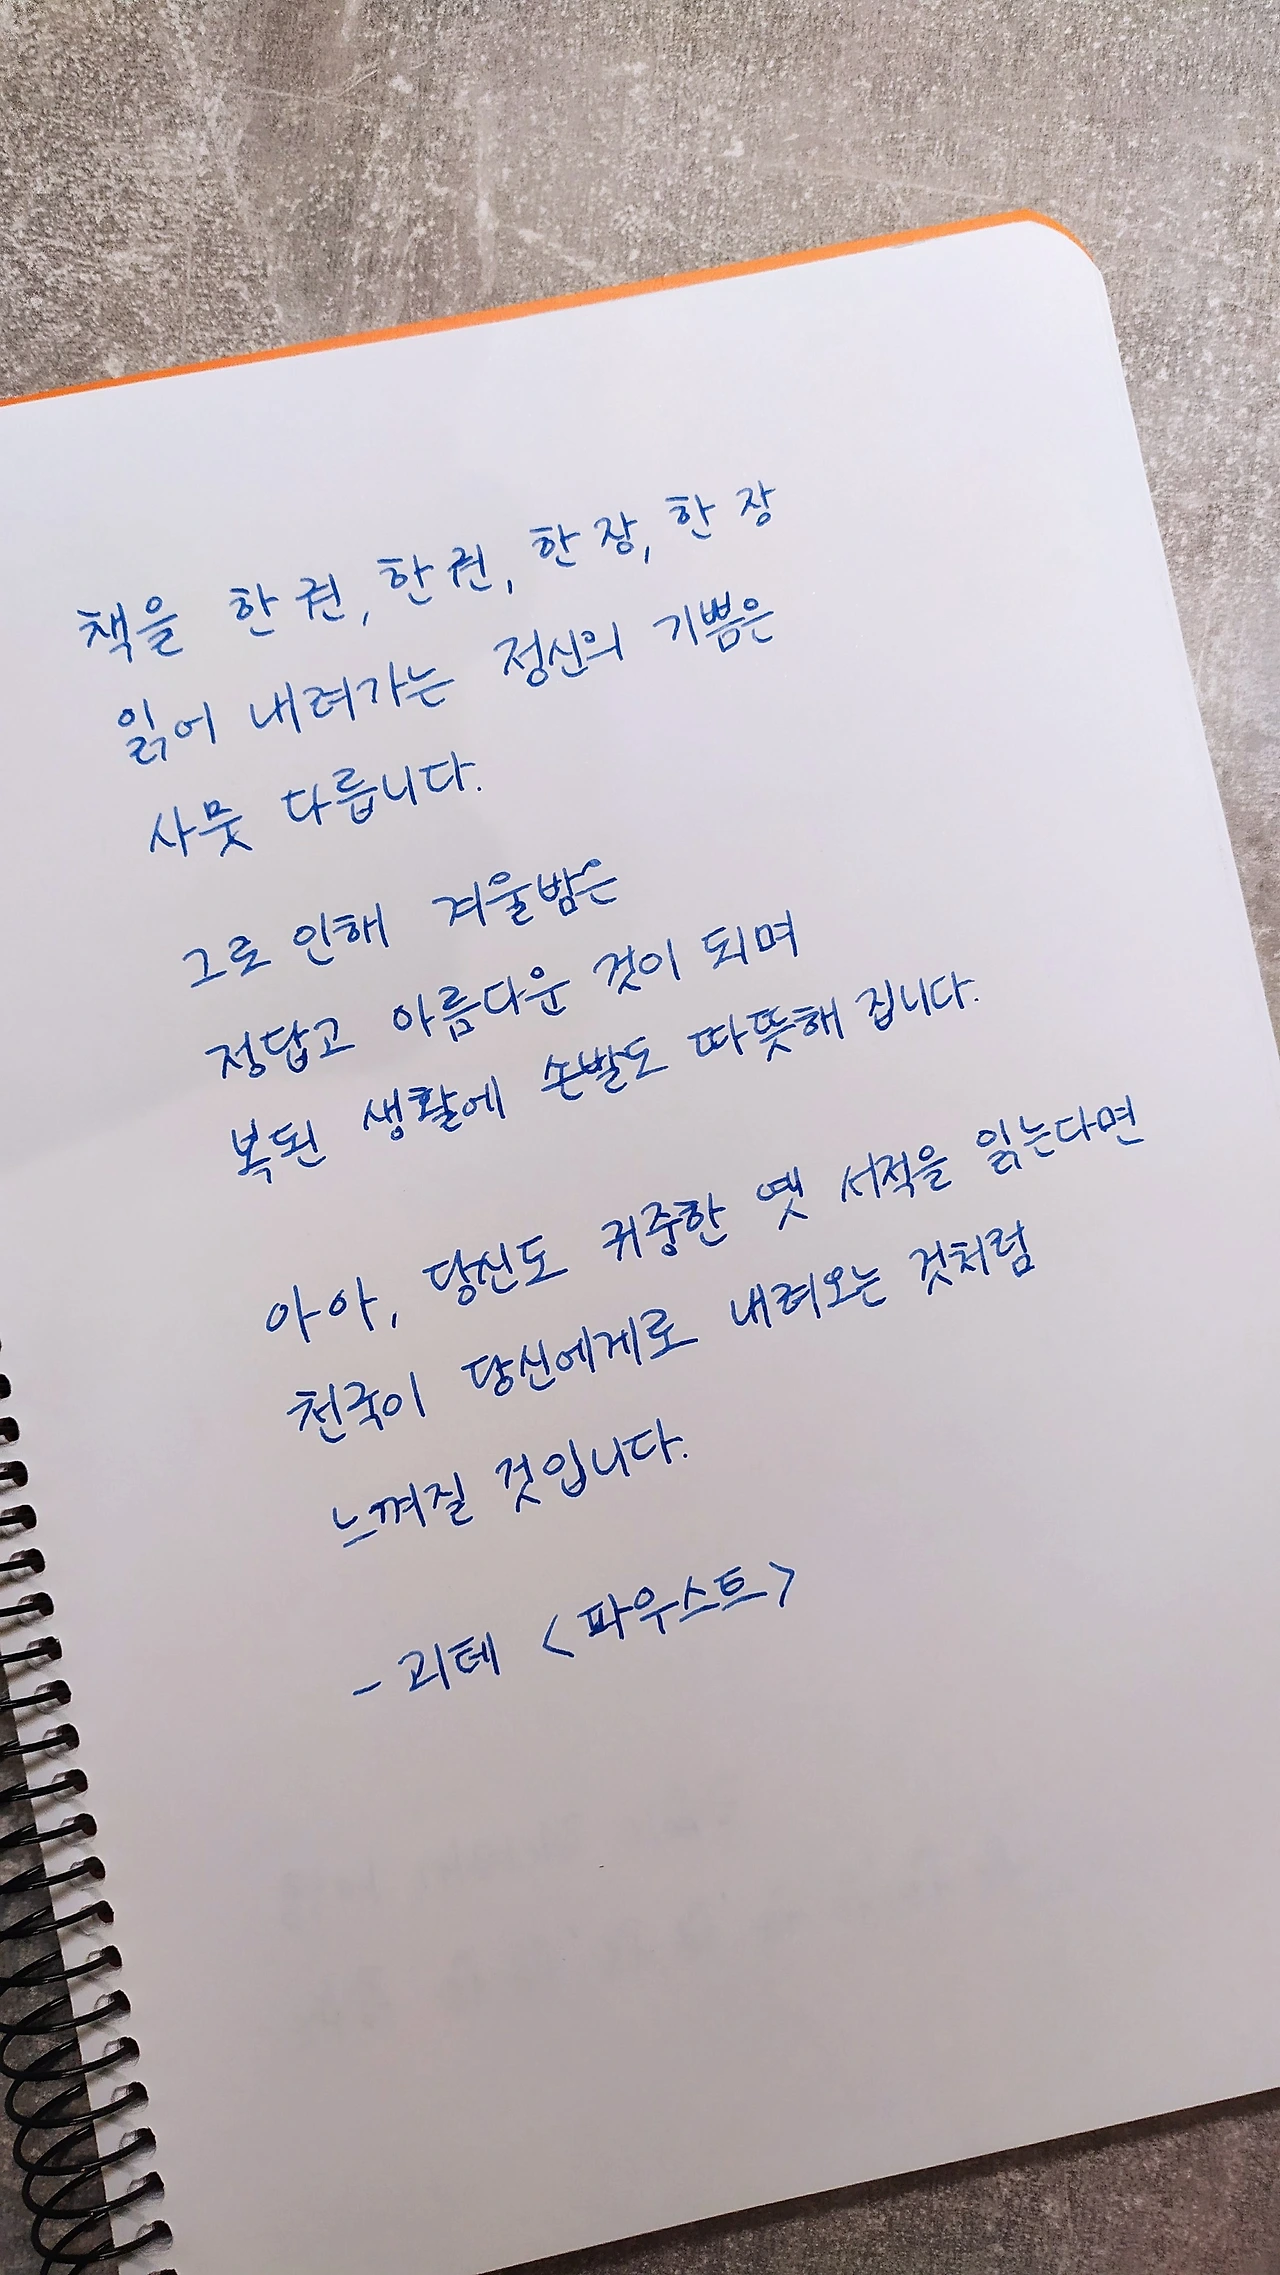 책을 한 권, 한 권, 한 장, 한 장
읽어 내려가는 정신의 기쁨은
사뭇 다릅니다.
그로 인해 겨울밤은
정답고 아름다운 것이 되며
복된 생활에 손발도 따뜻해 집니다.
아아, 당신도 귀중한 옛 서적을 읽는다면
천국이 당신에게로 내려오는 것처럼
느껴질 것입니다.
- 괴테 <파우스트>